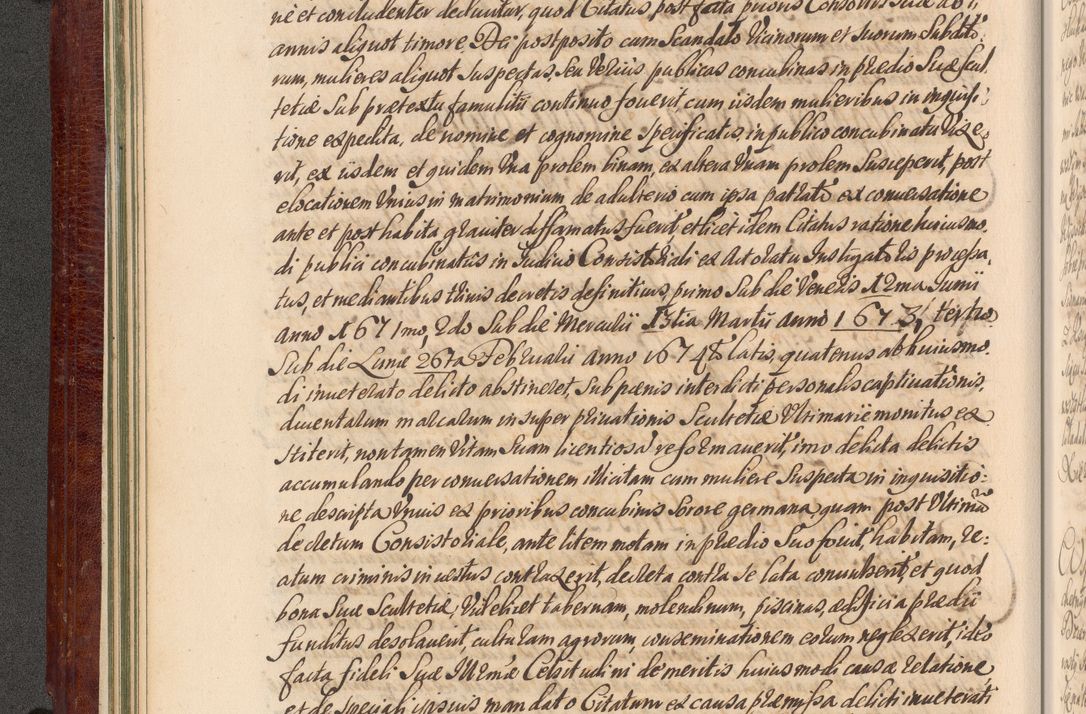 ne et concludenter deducitur, quod Citatus post fata prioris Consortis suae ab
annis aliquot timore Dei postposito cum Scandalo Vicinorum et Suorum Subdito:
rum, mulieres aliquot Suspectas, Seu Verius publicas concubinas in praedio Suae Scul
tetiae Sub praetextu famulitii continuo fouerit cum iisdem mulieribus in inquisi:
tione expedita, de nomine et cognomine specificatis, in publico concubinatu Vixe:
rit, ex iisdem et quidem Vna prolem binam, ex altera Vnam prolem Susceperit, post
elocationem Vnius in matrimonium, de adulterio cum ipsa patrato ex conuersatione
ante et post habita grauiter diffamatus fuerit, et licet idem Citatus ratione huiusmo,
di publici concubinatus in Judicio Consistoriali ex Actoratu Instigatoris processa,
tus, et mediantibus trinis decretis definitiuis, primo Sub die Veneris 12ma Junii
anno 1671mo, 2do Sub die Mercurii 13tia Martii anno 1673, tertio
Sub die Lunae 26ta Februarii anno 1674to latis, quatenus ab huiusmo.
di inueterato delicto abstineret, Sub paenis interdicti personalis captiuationis,
ducentarum marcarum insuper priuationis Scultetiae Vltimarie monitus ex
stiterit, non tamen Vitam Suam licentiosa reformauerit, imo delicta delictis
accumulando per conuersationem illicitam cum muliere Suspecta in inquisitio:
ne descripta Vnius ex prioribus concubinis Sorore germana, quam post Vltimum
decretum Consistoriale, ante litem motam in praedio Suo fouit, habitam, re:
atum criminis incestus contraxerit, decreta contra se lata conuulserit, et quod
bona Suae Scultetiae Videlicet tabernam, molendinum, piscinas, aedificia praedii
funditus desolauerit, culturam agrorum, conseminationem eorum neglexerit, ideo
facta fideli Suae Illmae Celsitudini de meritis huiusmodi causae relatione
et de speciali ipsius mandato Citatum ex causa praemissa delicti inueterati